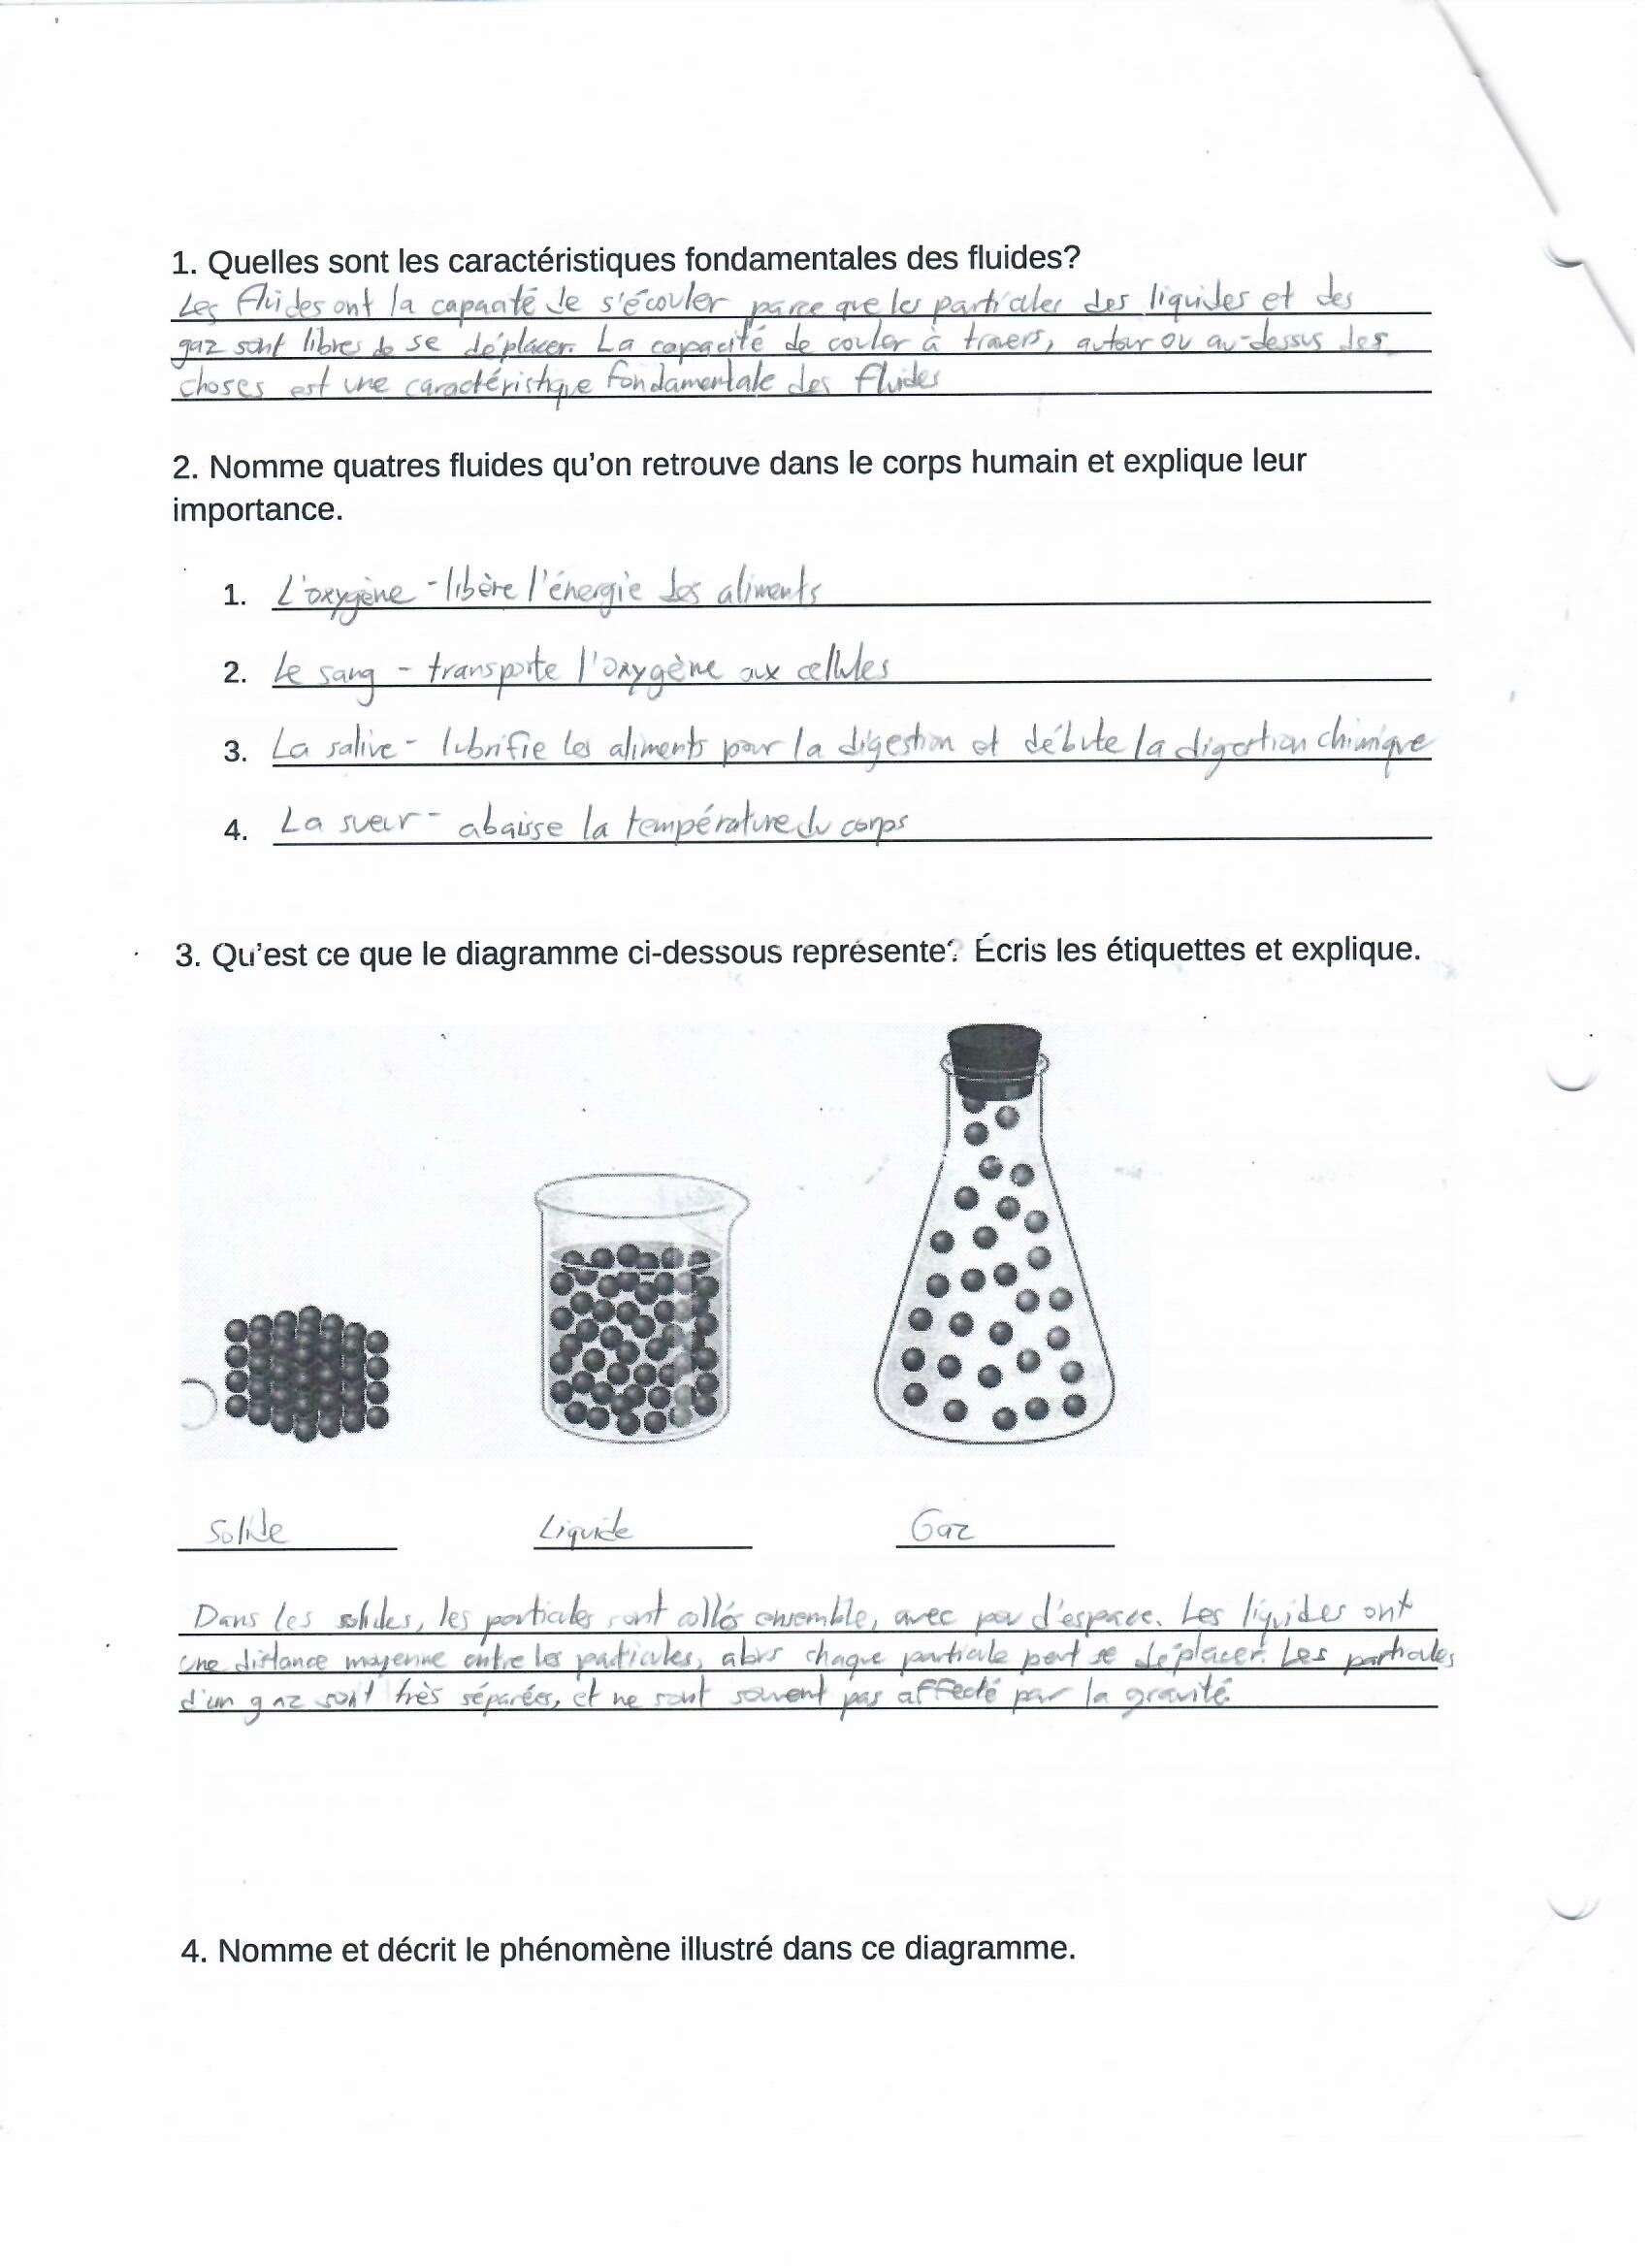 1. Quelles sont les caractéristiques fondamentales des fluides?
Les fluides ont la capacité de s'écouler parce que les particules des liquides et des
gaz sont libres de se déplacer. La capacité de couler à travers, autour ou au-dessus des
choses est une caractéristique fondamentale des fluides
2. Nomme quatres fluides qu'on retrouve dans le corps humain et explique leur
importance.
1. L'oxygène - libère l'énergie des aliments
2. Le sang - transporte l'oxygène aux cellules
3. La salive - lubrifie les aliments pour la digestion et débute la digestion chimique
4. La sueur - abaisse la température du corps
3. Qu'est ce que le diagramme ci-dessous représente? Écris les étiquettes et explique.
Solide Liquide Gaz
Dans les solides, les particules sont collés ensemble, avec peu d'espace. Les liquides ont
une distance moyenne entre les particules, alors chaque particule peut se déplacer. Les particules
d'un gaz sont très séparées, et ne sont souvent pas affecté par la gravité.
4. Nomme et décrit le phénomène illustré dans ce diagramme.